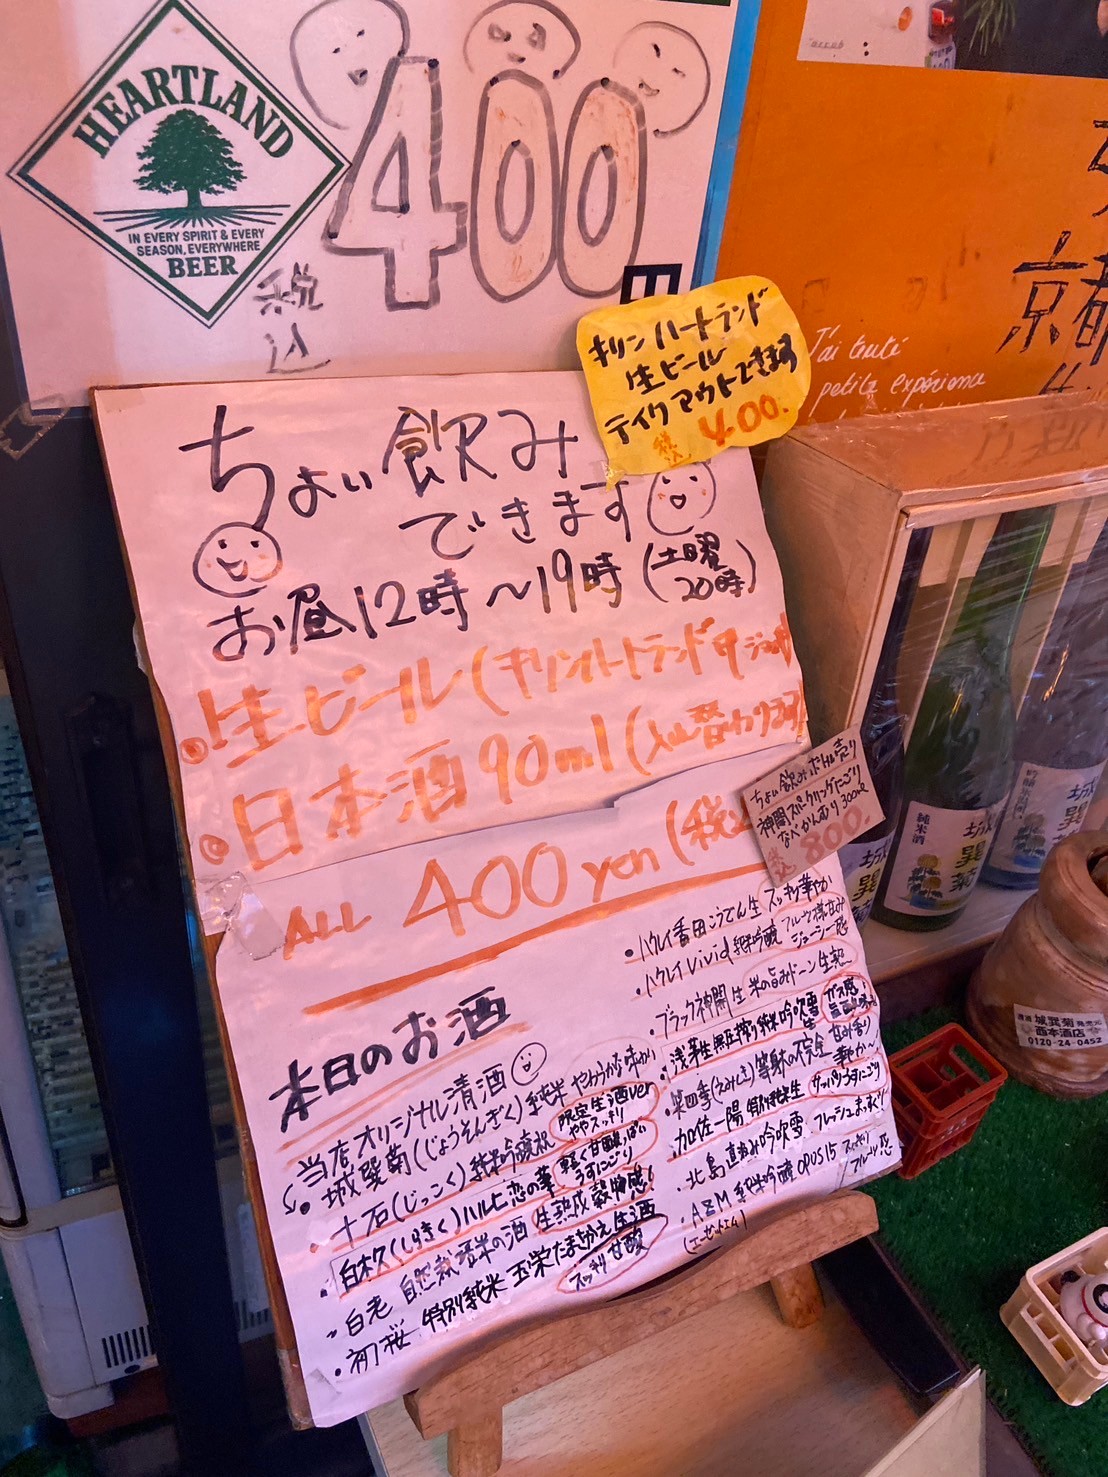 HEARTLAND
IN EVERY SPIRIT & EVERY
SEASON, EVERYWHERE
BEER
税込
400
円
キリンハートランド
生ビール
テイクアウトできます
税込 ¥400.
J'ai tenté
petite expérience
京都
ちょい飲み
できます
お昼12時〜19時(土曜20時)
生ビール(キリンハートランド中ジョッキ
日本酒90ml(入れ替わります
ALL 400 yen (税込
ちょい飲みボトル売り
神開スパークリングにごり
なべかんむり300ml
税込 800.
本日のお酒
当店オリジナル清酒
城巽菊(じょうそんぎく)純米 やわらかな味わい
十石(じっこく)純米吟醸祝 限定生酒ver ややスッキリ
白木久(しらきく)ハルヒ恋の華 軽く甘酸っぱい うすにごり
白老 自然栽培米の酒 生熟成 穀物感!
初桜 特別純米 玉栄たまさかえ生酒 スッキリ甘酸
ハクレイ香田こうでん生 スッキリ華やか
ハクレイVivid純米吟醸 フルーツ様甘み ジューシー感
ブラック神開 生 米の旨みドーン 生熟
浅茅生無圧搾り純米吟吹雪 ガス感!
笑四季(えみしき)等身大の完全 生 甘み香り 華やか〜
加佐一陽 特別純米生 サッパリうすにごり
北島 直汲み吟吹雪 フレッシュまっすぐ!
AZM 純米吟醸 OPUS15 スッキリ フルーツ感
純米酒
城巽菊
吟醸
城巽菊
城巽菊
清酒 城巽菊 発売元
西本酒店
0120-24-0452